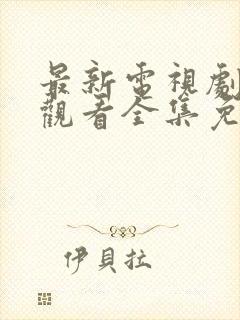 最新電視劇
觀看全集免
伊貝拉